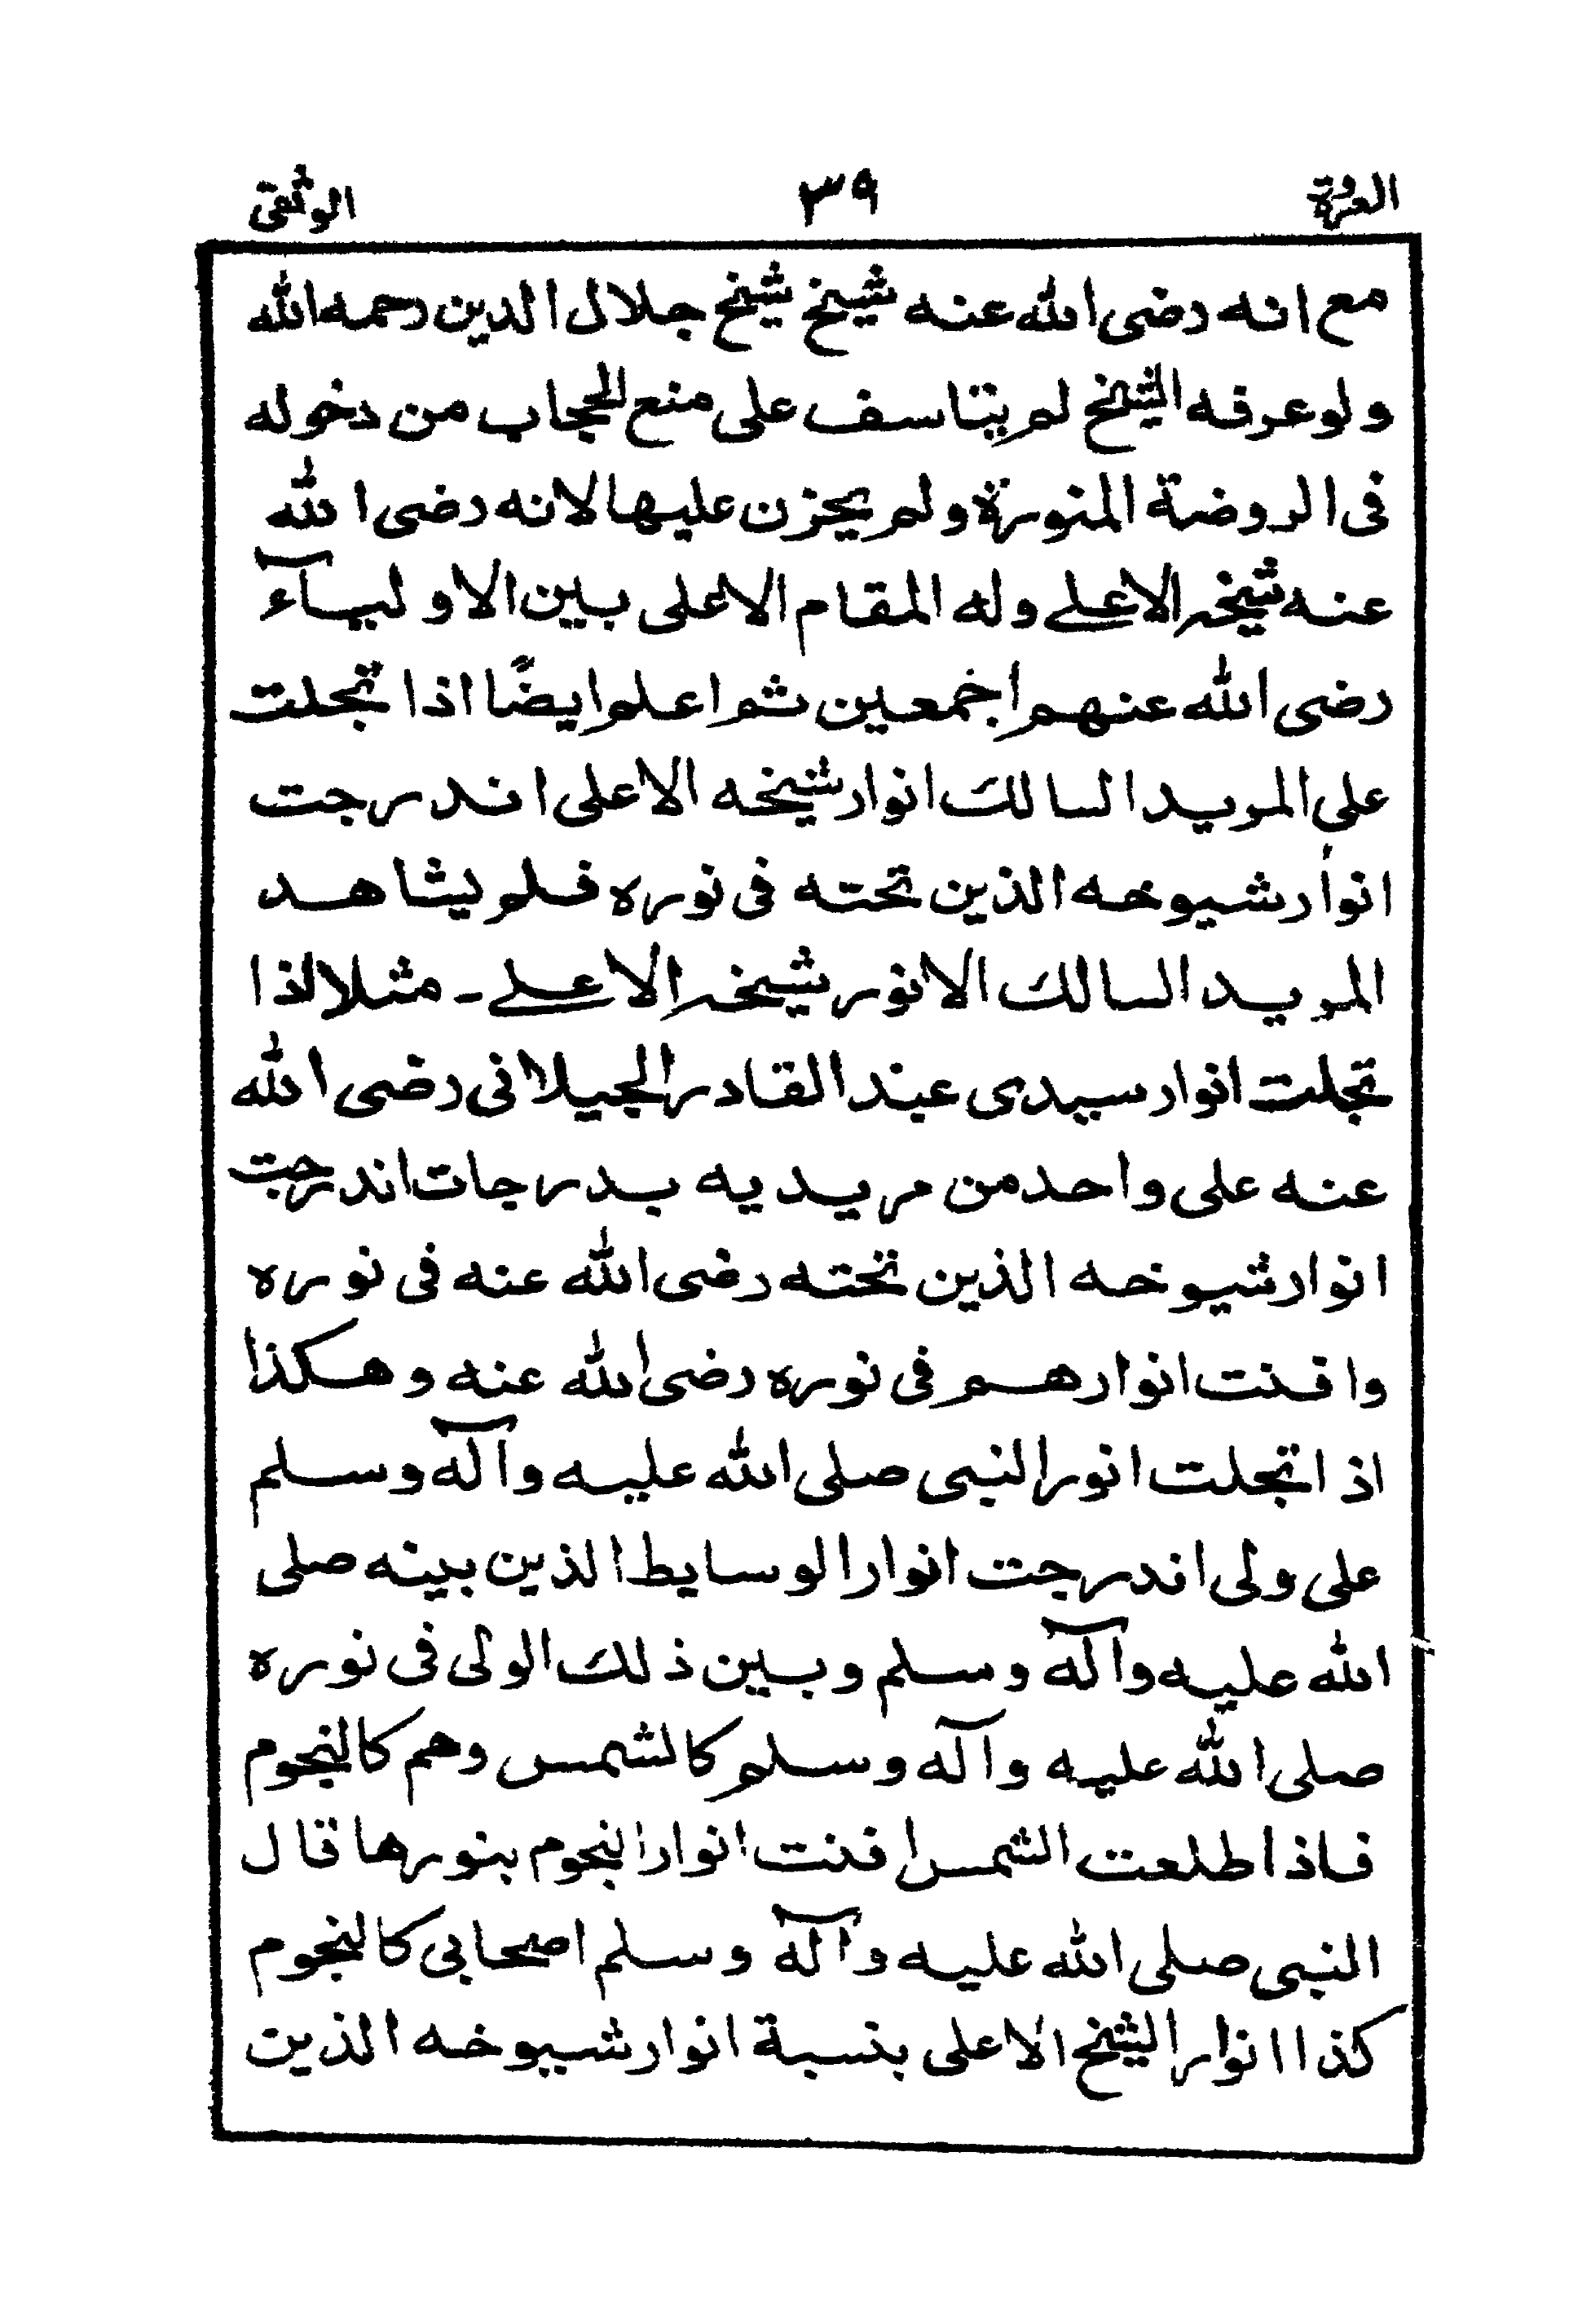 العروة ٣٩ الوثقى
مع انه رضى الله عنه شيخ شيخ جلال الدين رحمه الله
ولو عرفه الشيخ لم يتاسف على منع الحجاب من دخوله
فى الروضة المنورة ولم يحزن عليها لانه رضى الله
عنه شيخه الاعلى وله المقام الاعلى بين الاوليآء
رضى الله عنهم اجمعين ثم اعلم ايضًا اذا تجلت
على المريد السالك انوار شيخه الاعلى اندرجت
انوار شيوخه الذين تحته فى نوره فلم يشاهد
المريد السالك الا نور شيخه الاعلى - مثلا اذا
تجلت انوار سيدى عبد القادر الجيلانى رضى الله
عنه على واحد من مريديه بدرجات اندرجت
انوار شيوخه الذين تحته رضى الله عنه فى نوره
وافنت انوارهم فى نوره رضى الله عنه وهكذا
اذا تجلت انور النبى صلى الله عليه وآله وسلم
على ولى اندرجت انوار الوسايط الذين بينه صلى
الله عليه وآله وسلم وبين ذلك الولى فى نوره
صلى الله عليه وآله وسلم كالشمس وهم كالنجوم
فاذا طلعت الشمس افنت انوار النجوم بنورها قال
النبى صلى الله عليه وآله وسلم اصحابى كالنجوم
كذا انوار الشيخ الاعلى بنسبة انوار شيوخه الذين